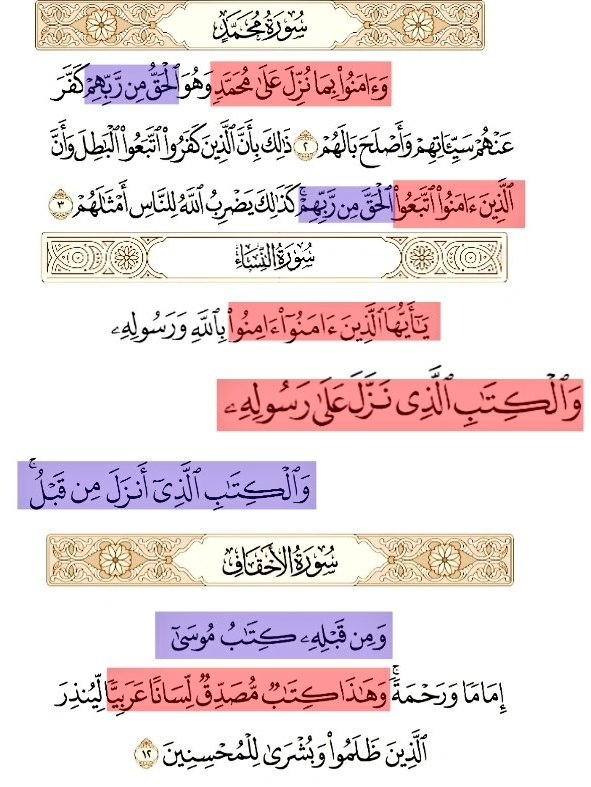 سُورَةُ مُحَمَّدٍ
وَءَامَنُوا۟ بِمَا نُزِّلَ عَلَىٰ مُحَمَّدٍ وَهُوَ ٱلْحَقُّ مِن رَّبِّهِمْ كَفَّرَ
عَنْهُمْ سَيِّـَٔاتِهِمْ وَأَصْلَحَ بَالَهُمْ ٢ ذَٰلِكَ بِأَنَّ ٱلَّذِينَ كَفَرُوا۟ ٱتَّبَعُوا۟ ٱلْبَٰطِلَ وَأَنَّ
ٱلَّذِينَ ءَامَنُوا۟ ٱتَّبَعُوا۟ ٱلْحَقَّ مِن رَّبِّهِمْ ۚ كَذَٰلِكَ يَضْرِبُ ٱللَّهُ لِلنَّاسِ أَمْثَٰلَهُمْ ٣
سُورَةُ النِّسَاءِ
يَٰٓأَيُّهَا ٱلَّذِينَ ءَامَنُوٓا۟ ءَامِنُوا۟ بِٱللَّهِ وَرَسُولِهِۦ
وَٱلْكِتَٰبِ ٱلَّذِى نَزَّلَ عَلَىٰ رَسُولِهِۦ
وَٱلْكِتَٰبِ ٱلَّذِىٓ أَنزَلَ مِن قَبْلُ ۚ
سُورَةُ الأَحْقَافِ
وَمِن قَبْلِهِۦ كِتَٰبُ مُوسَىٰٓ
إِمَامًا وَرَحْمَةً ۚ وَهَٰذَا كِتَٰبٌ مُّصَدِّقٌ لِّسَانًا عَرَبِيًّا لِّيُنذِرَ
ٱلَّذِينَ ظَلَمُوا۟ وَبُشْرَىٰ لِلْمُحْسِنِينَ ١٢